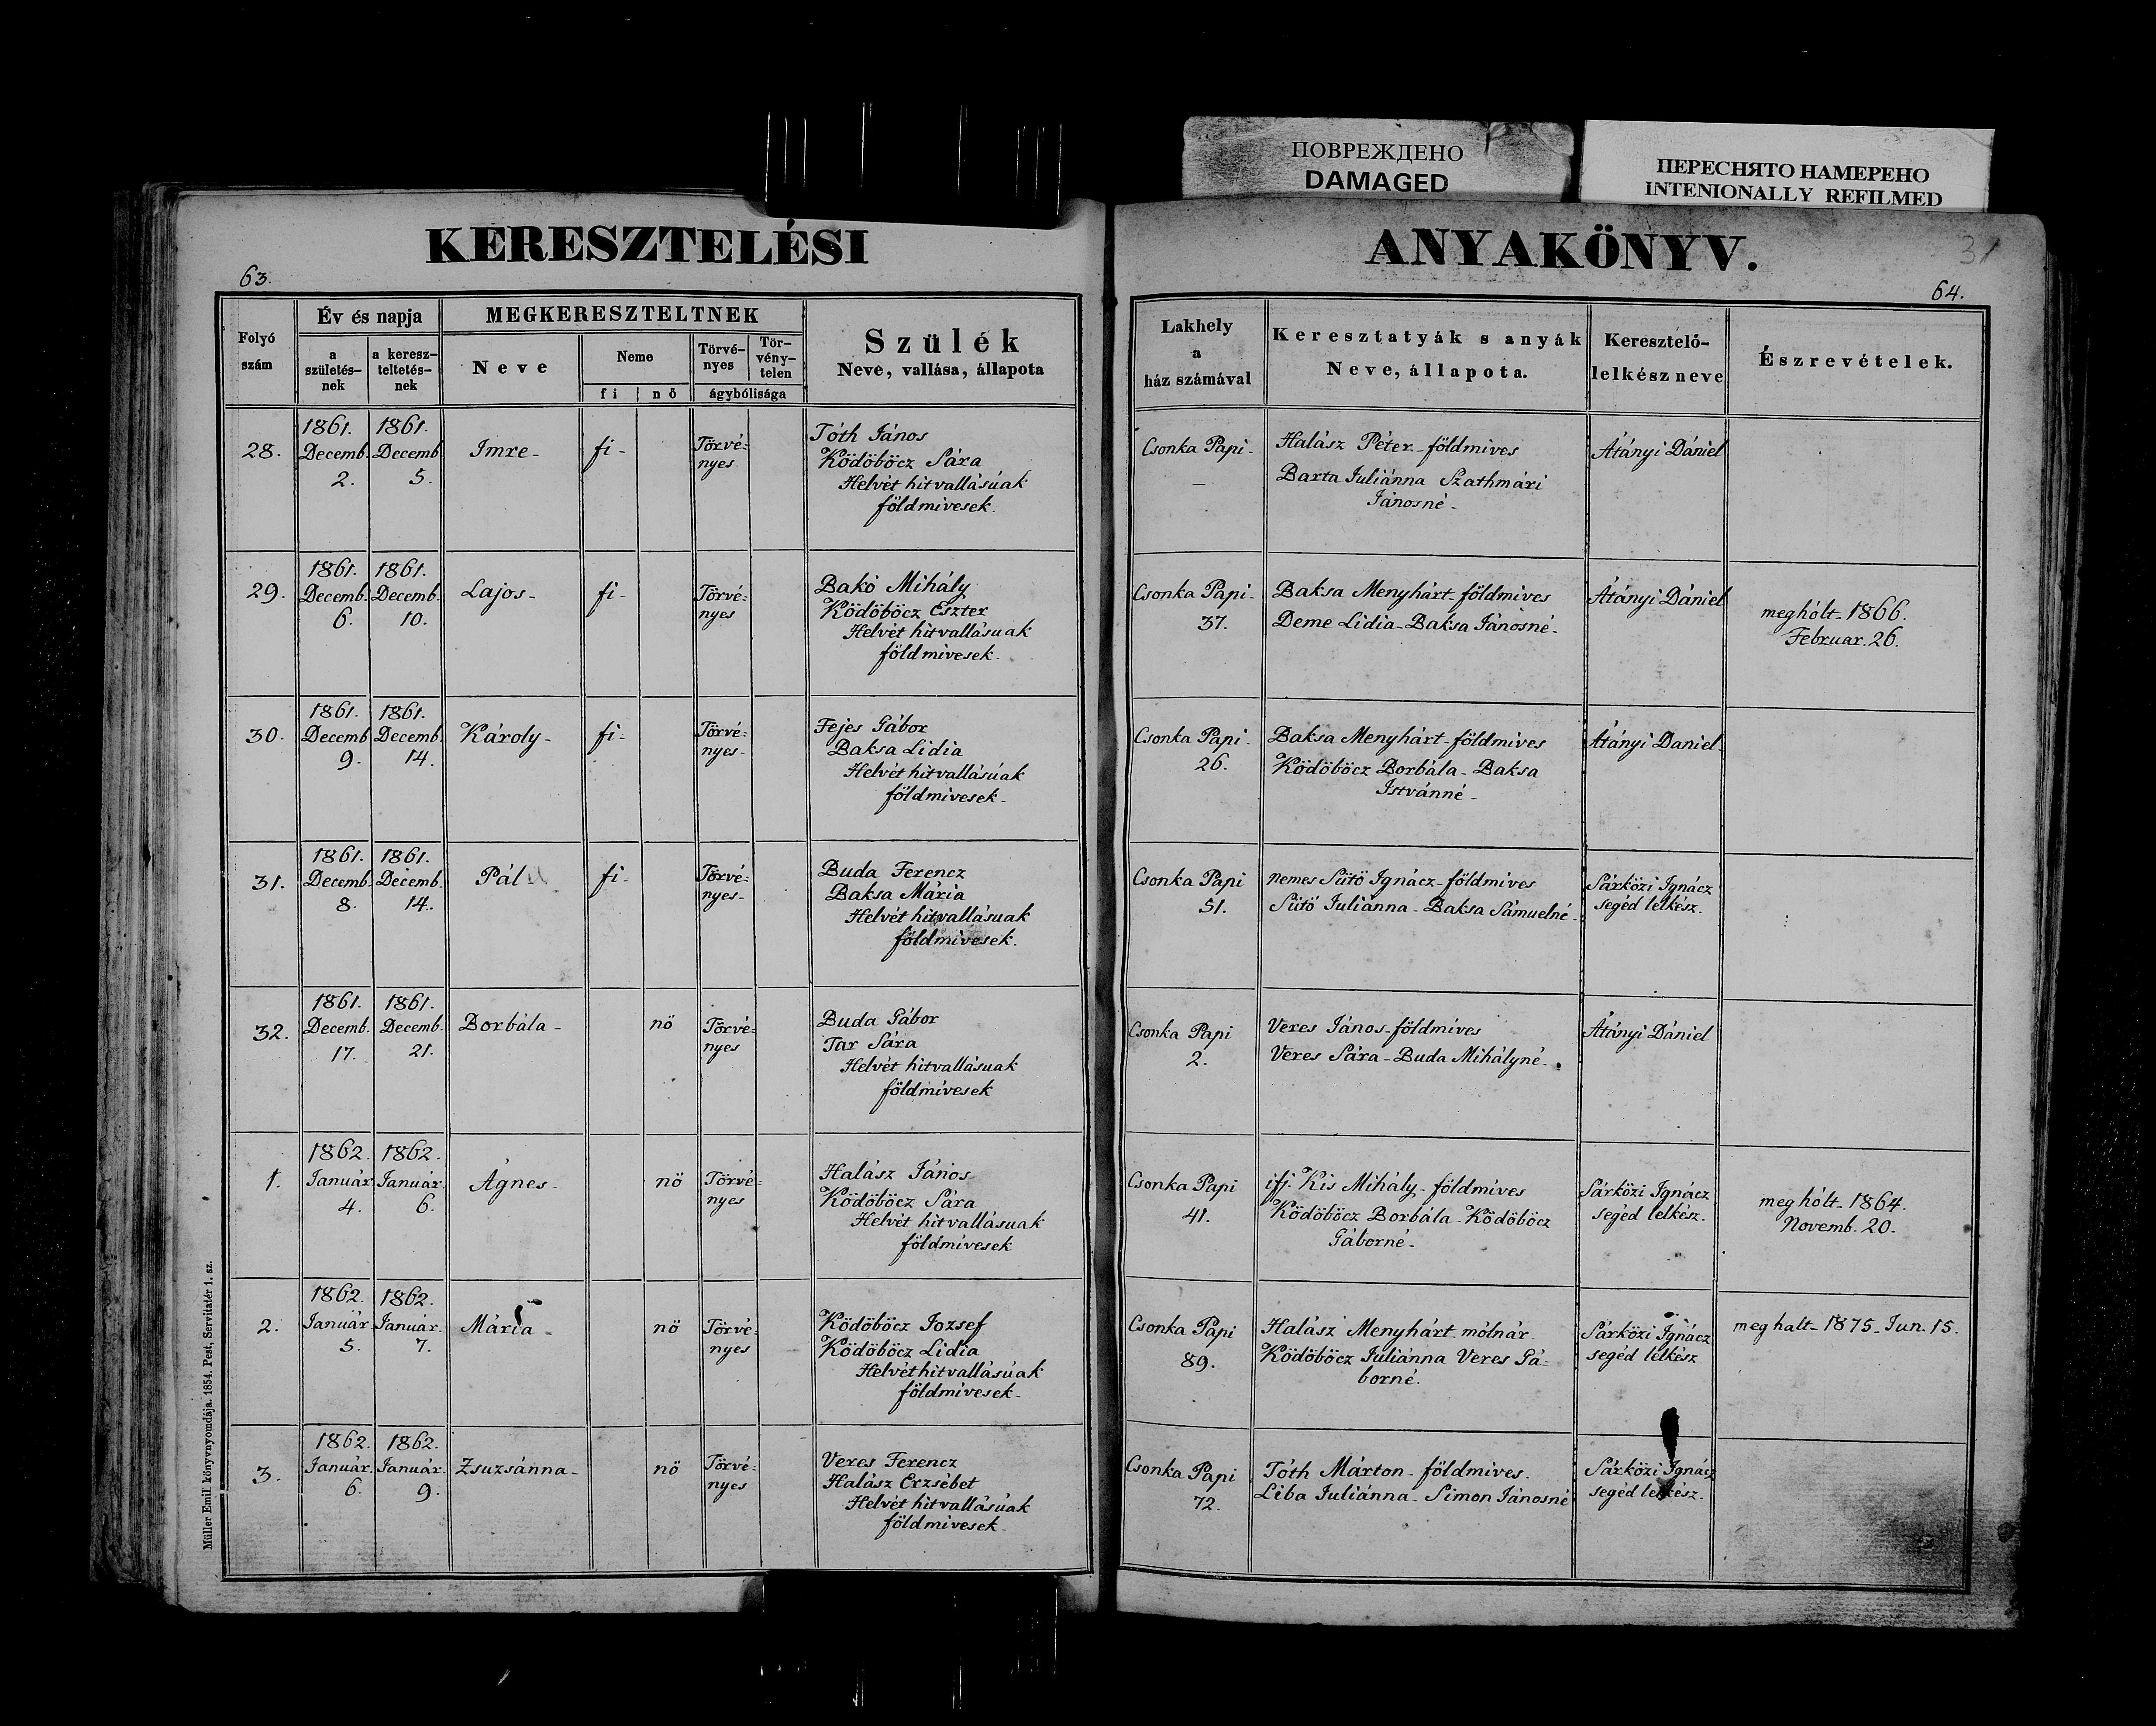 ПОВРЕЖДЕНО
DAMAGED
ПЕРЕСНЯТО НАМЕРЕНО
INTENIONALLY REFILMED
KERESZTELÉSI
63.
Folyó szám
Év és napja
a születés-nek
a keresz-teltetés-nek
MEGKERESZTELTNEK
Neve
Neme
fi
nő
Törvé-nyes
Tör-vény-telen
ágybólisága
Szülék
Neve, vallása, állapota
ANYAKÖNYV.
31
64.
Lakhely
a
ház számával
Keresztatyák s anyák
Neve, állapota.
Keresztelő-
lelkész neve
Észrevételek.
28.
1861. Decemb. 2.
1861. Decemb 5.
Imre-
fi-
Törvé-
nyes
Tóth János
Ködöböcz Sára
Helvét hitvallásúak
földmivesek.
Csonka Papi-
–
Halász Péter-földmives
Barta Juliánna Szathmári
Jánosné-
Átányi Dániel
29.
1861. Decemb. 6.
1861. Decemb. 10.
Lajos-
fi-
Törvé-
nyes
Bakó Mihály
Ködöböcz Eszter
Helvét hitvallásuak
földmivesek.
Csonka Papi-
37.
Baksa Menyhárt földmives
Deme Lidia-Baksa Jánosné-
Átányi Dániel
meghólt-1866.
Februar. 26.
30.
1861. Decemb 9.
1861. Decemb. 14.
Károly-
fi-
Törvé-
nyes-
Fejes Gábor
Baksa Lidia
Helvét hitvallásúak
földmivesek-
Csonka Papi-
26.
Baksa Menyhárt-földmives
Ködöböcz Borbála-Baksa
Istvánné-
Átányi Daniel-
31.
1861. Decemb. 8.
1861. Decemb. 14.
Pál
fi-
Törvé-
nyes-
Buda Ferencz
Baksa Mária
Helvét hitvallásuak
földmivesek.
Csonka Papi
51.
nemes Sütö Ignácz-földmives
Sütő Juliánna-Baksa Sámuelné-
Sárközi Ignácz
segéd lelkész.
32.
1861. Decemb. 17.
1861. Decemb. 21.
Borbála-
nö
Törvé-
nyes
Buda Gábor
Tar Sára
Helvét hitvallásuak
földmivesek
Csonka Papi
2.
Veres János-földmíves
Veres Sára-Buda Mihályné-
Átányi Dániel
1.
1862. Január 4.
1862. Január. 6.
Ágnes-
nö
Törvé-
nyes
Halász János
Ködöböcz Sára
Helvét hitvallásuak
földmívesek
Csonka Papi
41.
ifj. Kis Mihály-földmíves
Ködöböcz Borbála-Ködöböcz
Gáborné-
Sárközi Ignácz
segéd lelkész.
meghólt-1864.
Novemb. 20.
2.
1862. Január 5.
1862. Január. 7.
Mária-
nö
Törvé-
nyes
Ködöböcz Jozsef
Ködöböcz Lidia
Helvét hitvallásúak
földmívesek-
Csonka Papi
89.
Halász Menyhárt mólnár
Ködöböcz Juliánna Veres Gá-
borné.
Sárközi Ignácz
segéd lelkész
meghalt-1875-Jun. 15.
3.
1862. Január. 6.
1862. Január. 9.
Zsuzsánna-
nö
Törvé-
nyes
Veres Ferencz
Halász Erzsébet
Helvét hitvallásúak
földmivesek-
Csonka Papi
72.
Tóth Márton-földmíves.
Liba Juliánna-Simon Jánosné
Sárközi Ignácz
segéd lelkész.
Müller Emil könyvnyomdája. 1854. Pest, Servitatér 1. sz.